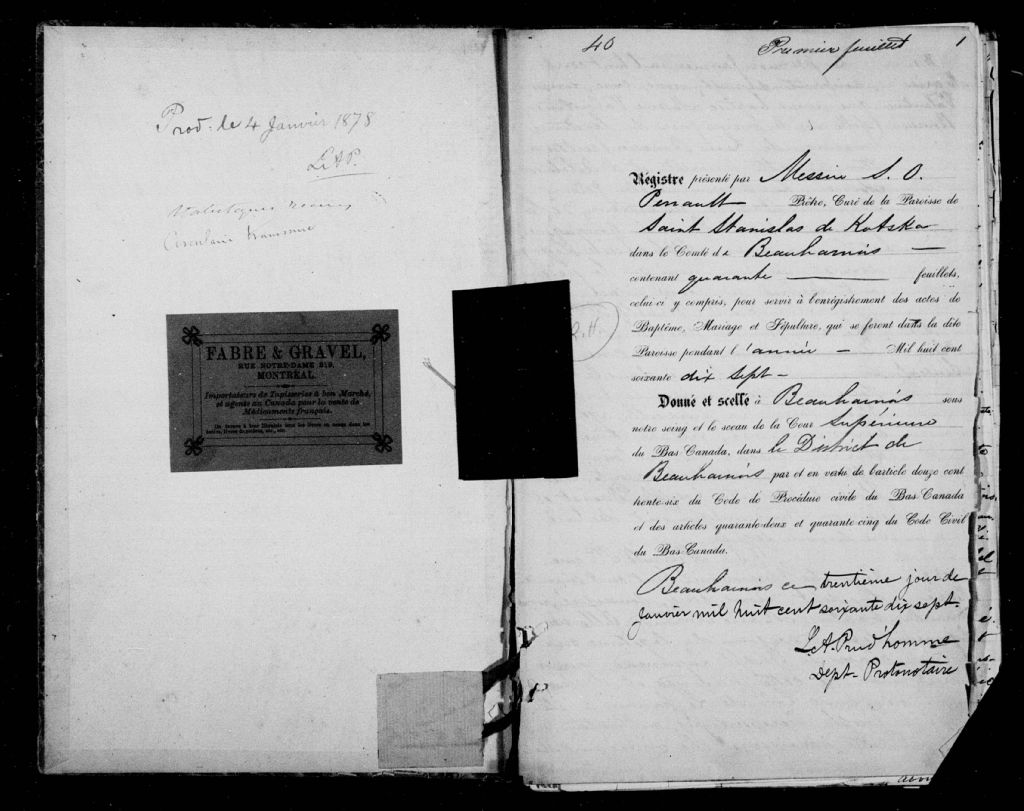 Prod. le 4 Janvier 1878
L.A.P.
FABRE & GRAVEL,
RUE NOTRE-DAME 219,
MONTREAL.
Importateurs de Tapisseries à bon Marché,
et agents au Canada pour la vente de
Médicaments français.
40
Premier feuillet
1
Régistre présenté par Messire S. O.
Perrault Prêtre, Curé de la Paroisse de
Saint Stanislas de Kotska
dans le Comté de Beauharnois —
contenant quarante — feuillets,
celui-ci y compris, pour servir à l'enrégistrement des actes de
Baptême, Mariage et Sépulture, qui se feront dans la dite
Paroisse pendant l'année — Mil huit cent
soixante dix sept —
Donné et scellé à Beauharnois sous
notre seing et le sceau de la Cour Supérieure
du Bas-Canada, dans le District de
Beauharnois par et en vertu de l'article douze cent
trente-six du Code de Procédure civile du Bas-Canada
et des articles quarante-deux et quarante-cinq du Code Civil
du Bas-Canada.
Beauharnois ce trentième jour de
Janvier mil huit cent soixante dix sept.
L.A. Prud'homme
Dept- Protonotaire